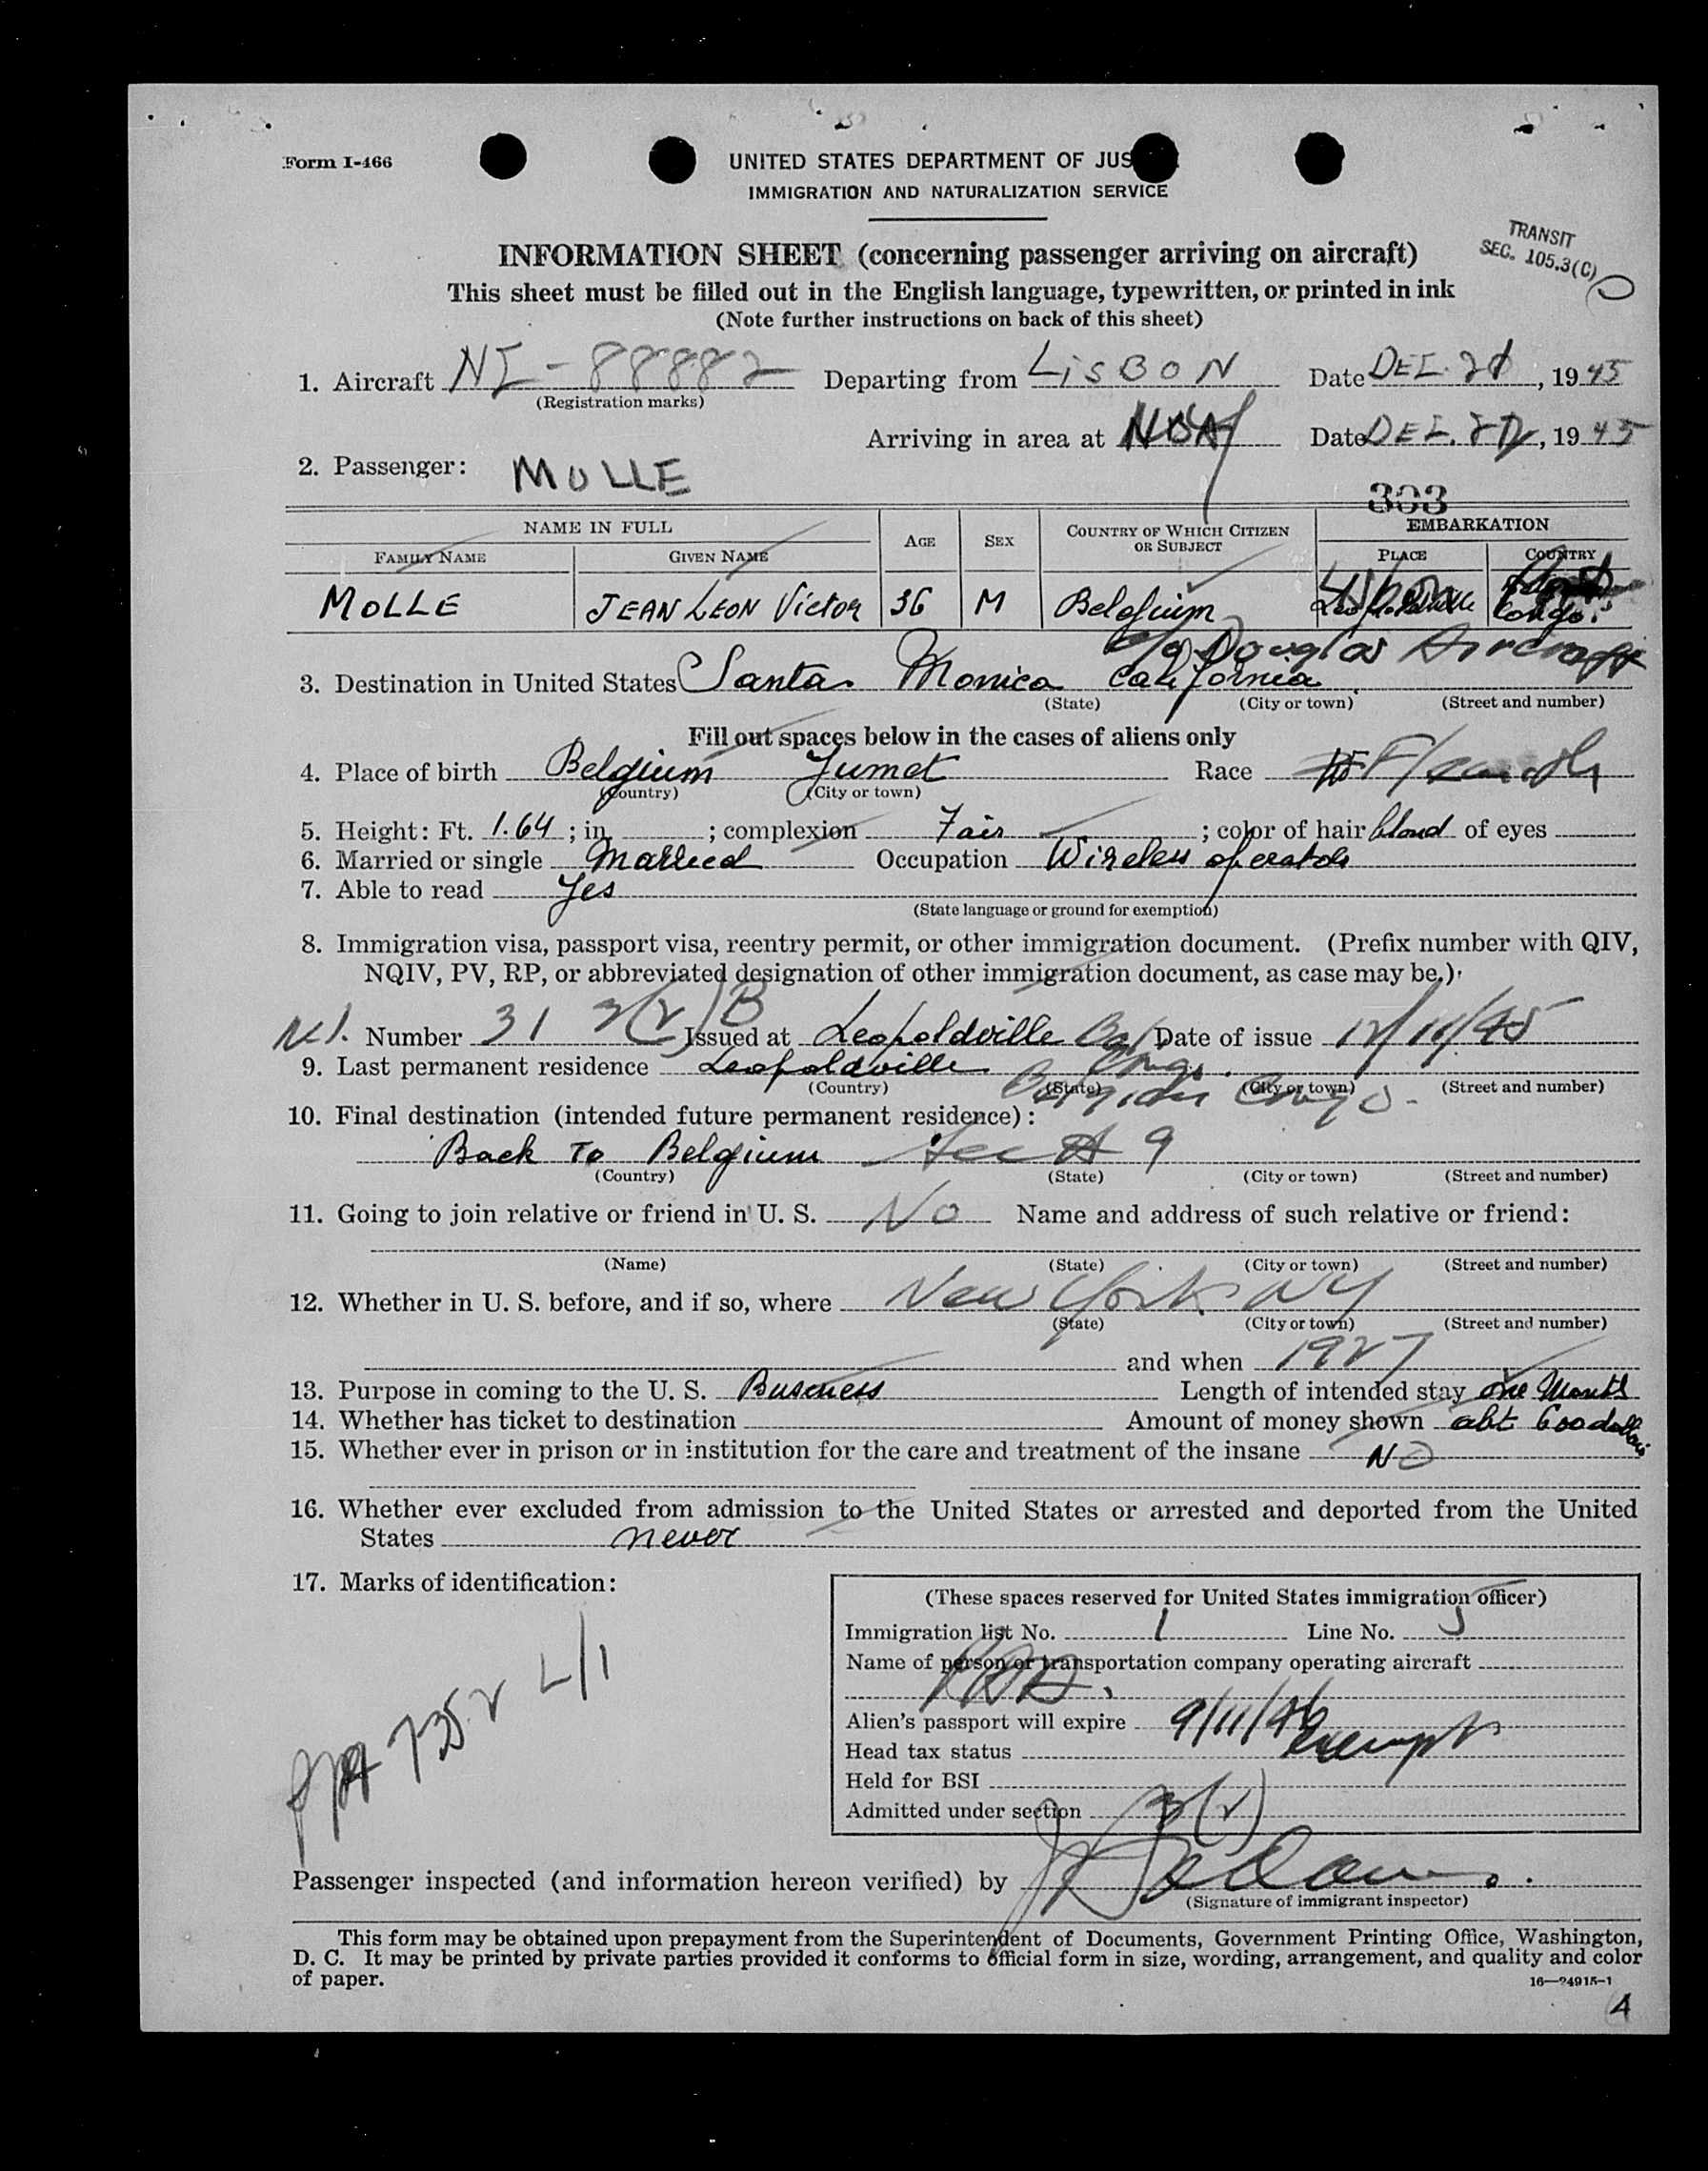 Form I-466
UNITED STATES DEPARTMENT OF JUS
IMMIGRATION AND NATURALIZATION SERVICE
INFORMATION SHEET (concerning passenger arriving on aircraft)
TRANSIT
SEC. 105.3(C)
This sheet must be filled out in the English language, typewritten, or printed in ink
(Note further instructions on back of this sheet)
1. Aircraft 88882 Departing from LISBON Date 1945
(Registration marks)
Arriving in area at Date 1945
2. Passenger: MOLLE
303
NAME IN FULL AGE SEX COUNTRY OF WHICH CITIZEN OR SUBJECT EMBARKATION
FAMILY NAME GIVEN NAME PLACE COUNTRY
MOLLE JEAN LEON Victor 36 M Belgium Lisbon Congo
c/o Douglas Aircraft
3. Destination in United States Santa Monica California
(State) (City or town) (Street and number)
Fill out spaces below in the cases of aliens only
4. Place of birth Belgium Jumet Race
(Country) (City or town)
5. Height: Ft. 1.64 ; in. ; complexion Fair ; color of hair blond of eyes
6. Married or single Married Occupation Wireless operator
7. Able to read Yes
(State language or ground for exemption)
8. Immigration visa, passport visa, reentry permit, or other immigration document. (Prefix number with QIV,
NQIV, PV, RP, or abbreviated designation of other immigration document, as case may be.)
Number 31 3(2)B Issued at Leopoldville Date of issue 12/11/45
9. Last permanent residence Leopoldville Congo
(Country) (State) (City or town) (Street and number)
Belgian Congo
10. Final destination (intended future permanent residence):
Back To Belgium See # 9
(Country) (State) (City or town) (Street and number)
11. Going to join relative or friend in U. S. No Name and address of such relative or friend:
(Name) (State) (City or town) (Street and number)
12. Whether in U. S. before, and if so, where New York NY
(State) (City or town) (Street and number)
and when 1927
13. Purpose in coming to the U. S. Business Length of intended stay one Month
14. Whether has ticket to destination Amount of money shown abt 600 dollars
15. Whether ever in prison or in institution for the care and treatment of the insane NO
16. Whether ever excluded from admission to the United States or arrested and deported from the United
States never
17. Marks of identification:
(These spaces reserved for United States immigration officer)
Immigration list No. 1 Line No. 5
Name of person or transportation company operating aircraft
Alien's passport will expire 9/11/46
Head tax status exempt
Held for BSI
Admitted under section 3(2)
L/1
Passenger inspected (and information hereon verified) by
(Signature of immigrant inspector)
This form may be obtained upon prepayment from the Superintendent of Documents, Government Printing Office, Washington,
D. C. It may be printed by private parties provided it conforms to official form in size, wording, arrangement, and quality and color
of paper.
16—24915-1
4